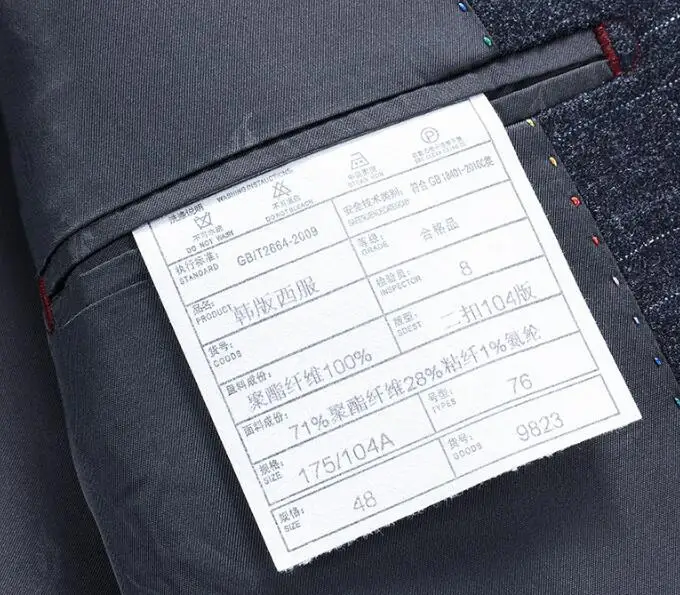 洗涤说明 WASHING DISTAUCTIONS
不可水洗
DO NOT WASH
不可漂白
DO NOT BLEACH
STEAM IRON
执行标准:
STANDARD
GB/T2664-2009
安全技术类别:
符合GB 18401-2010C类
品名:
PRODUCT
韩版西服
等级:
GRADE
合格品
货号:
GOODS
检验员:
INSPECTOR
8
里料成份:
聚酯纤维100%
版型:
SDEST
二扣104版
面料成份:
71%聚酯纤维28%粘纤1%氨纶
规格:
SIZE
175/104A
号型:
TYPES
76
规格:
SIZE
48
货号:
GOODS
9823